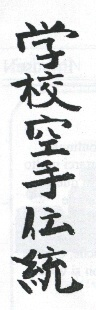 学校空手伝統